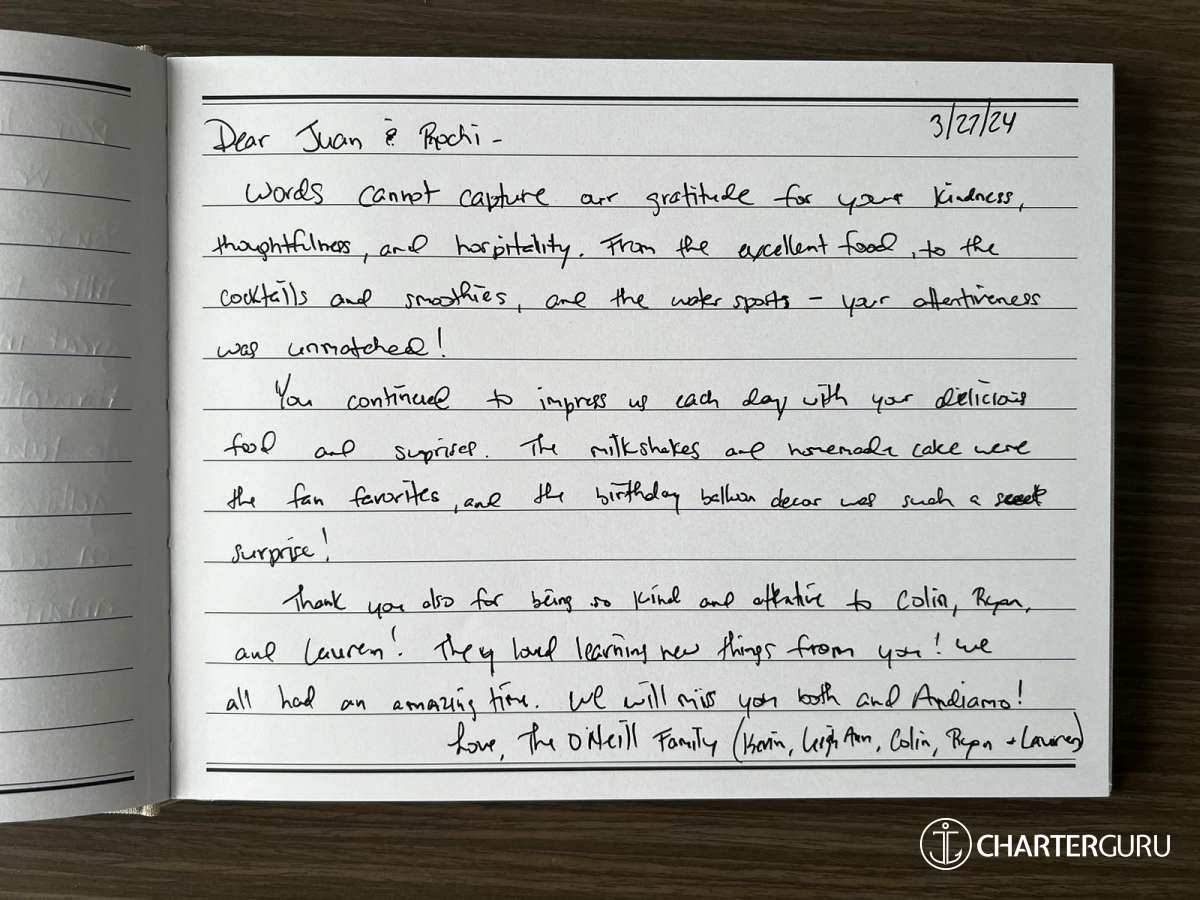 3/27/24
Dear Juan & Rochi -
Words cannot capture our gratitude for your kindness,
thoughtfulness, and hospitality. From the excellent food, to the
cocktails and smoothies, and the water sports - your attentiveness
was unmatched!
You continued to impress us each day with your delicious
food and surprises. The milkshakes and homemade cake were
the fan favorites, and the birthday balloon decor was such a sweet
surprise!
Thank you also for being so kind and attentive to Colin, Ryan,
and Lauren! They loved learning new things from you! We
all had an amazing time. We will miss you both and Andiamo!
Love, The O'Neill Family (Kevin, Leigh Ann, Colin, Ryan + Lauren)
CHARTERGURU